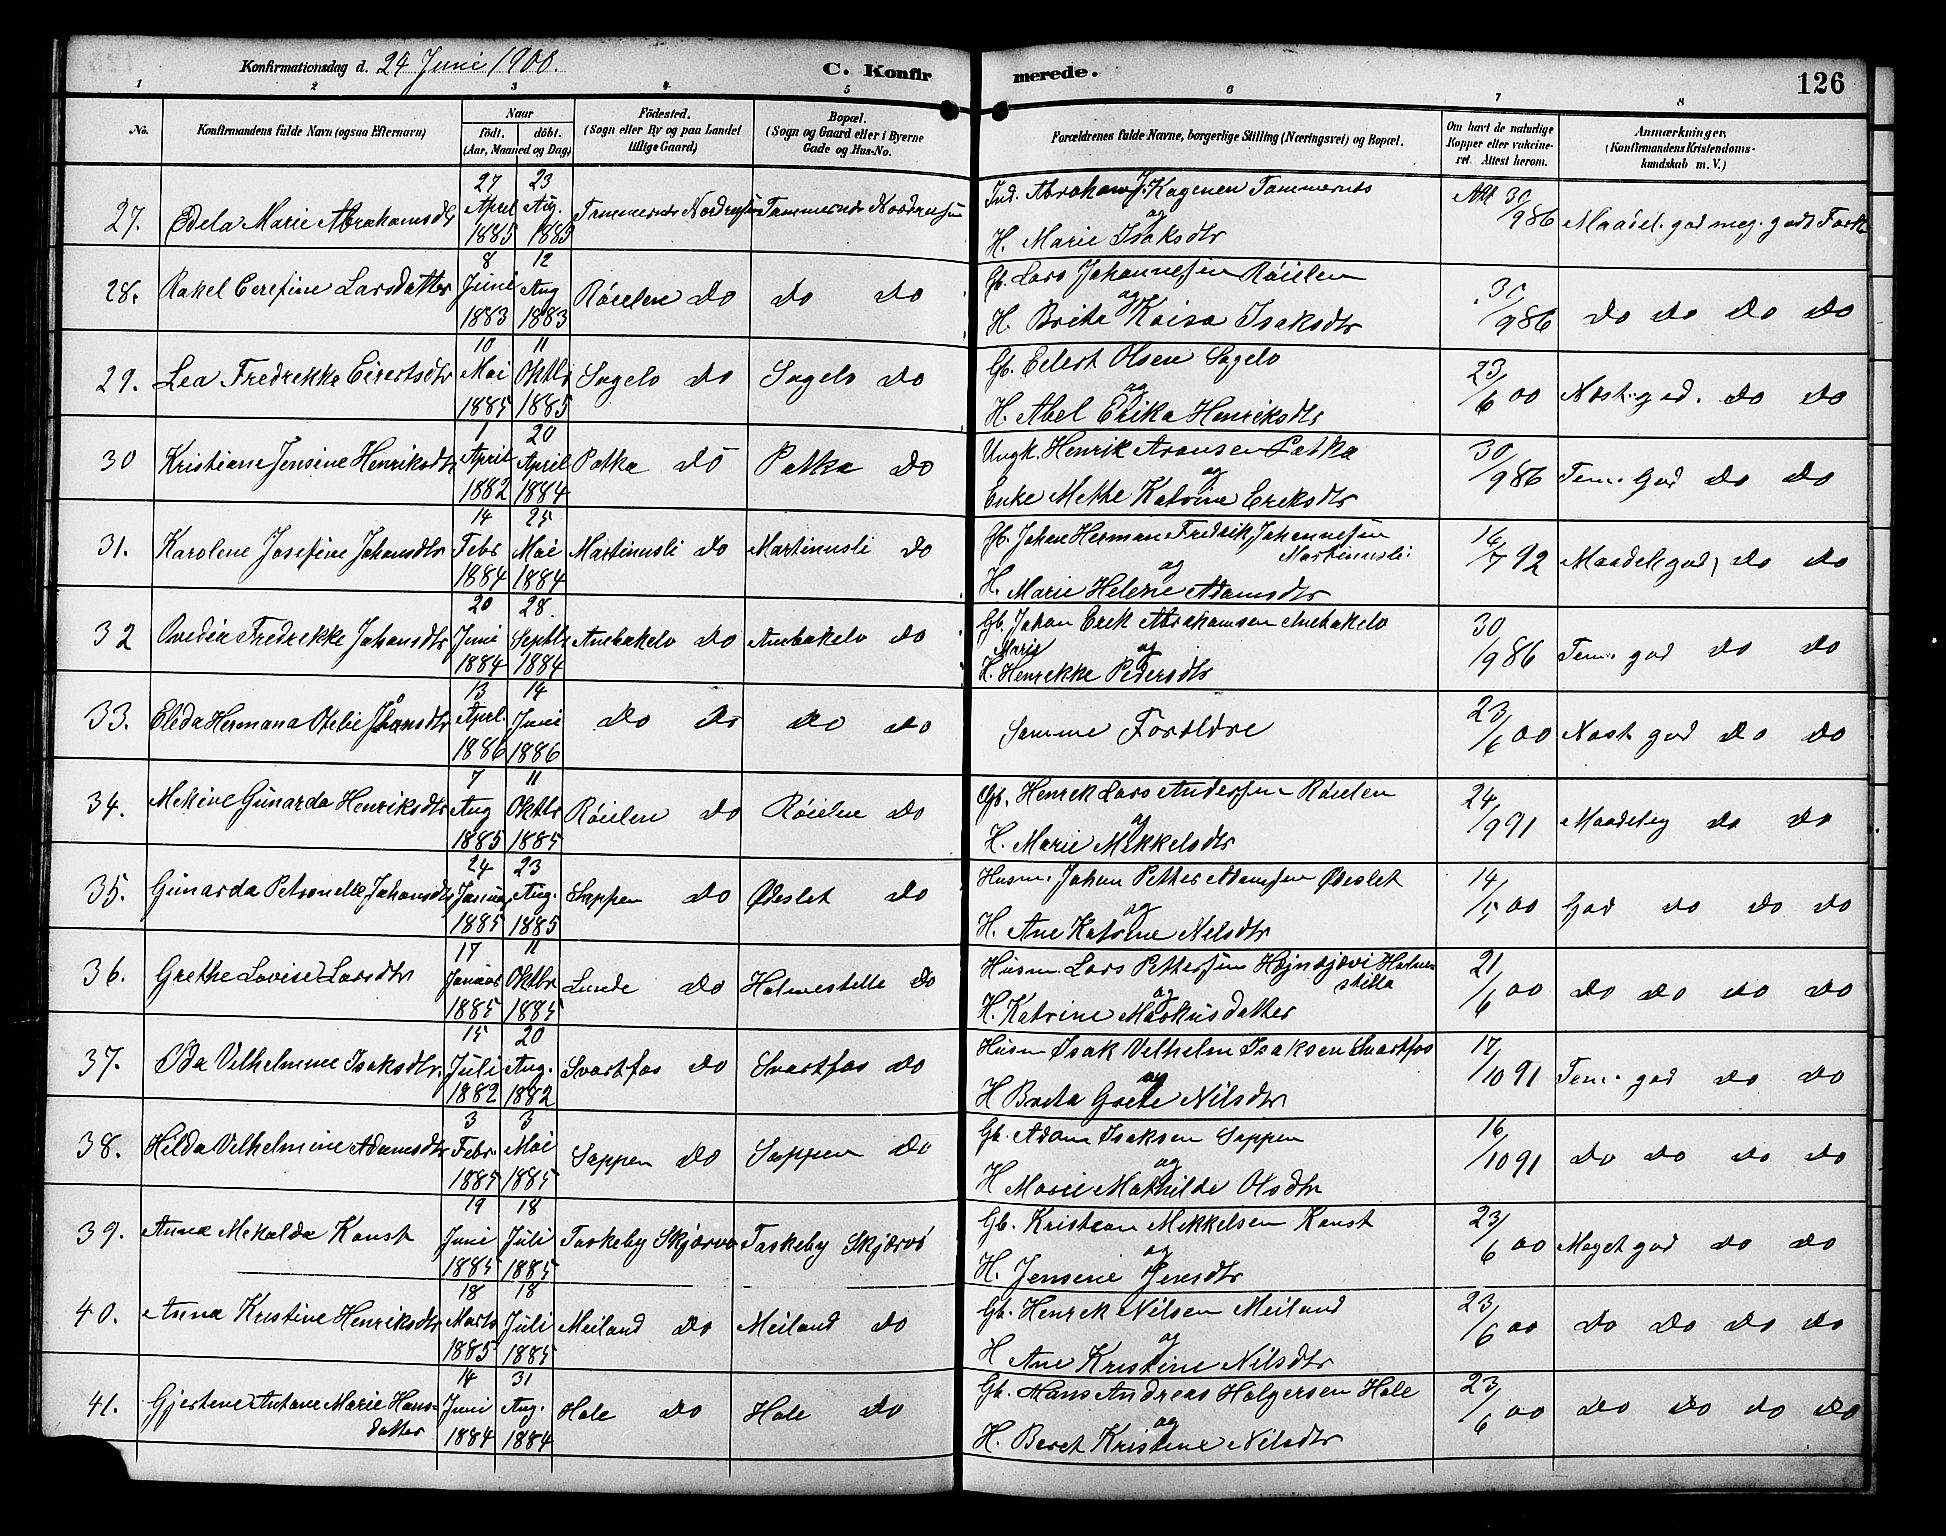 Konfirmationsdag d. 24 Juni 1900. C. Konfirmerede. 126
1 2 3 4 5 6 7 8
No. Konfirmandens fulde Navn (ogsaa Efternavn) Naar født. døbt. (Aar, Maaned og Dag) Fødested. (Sogn eller By og paa Landet tillige Gaard) Bopæl. (Sogn og Gaard eller i Byerne Gade og Hus-No. Forældrenes fulde Navne, borgerlige Stilling (Næringsvei) og Bopæl. Om havt de naturlige Kopper eller vakcineret. Attest herom. Anmærkninger, (Konfirmandens Kristendomskundskab m. V.)
27. Edela Marie Abrahamsdtr 27 April 1885 23 Aug. 1885 Ind. Abraham J. Kagenen Tammernes og H. Marie Isaksdtr 30/9 86 Maadel. god meg. godt Forh
28. Rakel Cerefine Larsdatter 8 Juni 1883 12 Aug 1883 Röielen do do do Gb. Lars Johannesen Röielen og H. Brita Kaisa Isaksdtr 30/9 86 do do do do
29. Lea Fredrekke Eivertsdtr 10 Mai 1885 11 Oktbr 1885 Sagelv do Sagelv do Gb. Eilert Olsen Sagelv og H. Abel Erika Henriksdtr 23/6 00 Næst. god. do do
30 Kristiane Jensine Henriksdtr 1 April 1882 20 April 1884 Patka do Patka do Ungk. Henrik Aronsen Patka og Enke Methe Katrine Eriksdtr 30/9 86 Tem. God do do
31. Karolene Josefine Johansdtr 14 Febr 1884 25 Mai 1884 Martinusli do Martinusli do Gb. Johan Herman Fredrik Johannesen Martinusli og H. Marie Helene Adamsdtr 16/7 92 Maadel god, do do
32 Ovedia Fredrekke Johansdtr 20 Juni 1884 28. Septbr 1884 Anebakelv do Anebakelv do Gb. Johan Erik Abrahamsen Anebakelv og H. Henrekke Marie Pedersdtr 30/9 86 Tem. god do do
33. Eleda Hermana Otelie Johansdtr 13 Aprl. 1886 14 Juni 1886 do do do do Samme Forældre 23/6 00 Næst god do do
34. Mekine Gunarda Henriksdtr 7 Aug 1885 11 Oktbr 1885 Röielen do Röielen do Gb. Henrek Lars Andersen Röielen og H. Marie Mekkelsdtr 24/9 91 Maadelig do do
35. Gunarda Petronelle Johansdtr 24 Januar 1885 23 Aug. 1885 Sappen do Ødeslet do Husm. Johan Petter Adamsen Ødeslet og H. Ane Katrine Nilsdtr 14/5 00 God do do do
36. Grethe Lovise Larsdtr 17 Januar 1885 11 Oktbr 1885 Lunde do Holmestille do Husm. Lars Pettersen og H. Katrine Markusdatter 21/6 00 do do do do
37. Oda Velhelmine Isaksdtr. 15 Juli 1882 20 Aug. 1882 Svartfos do Svartfos do Husm Isak Velhelm Isaksen Svartfos og H Breta Grete Nilsdtr 17/10 91 Tem. god do do
38. Hilda Velhelmine Adamsdtr 3 Febr. 1885 3 Mai 1885 Sappen do Sappen do Gb. Adam Isaksen Sappen og H Marie Mathilde Olsdtr 16/10 91 do do do do
39. Anna Mekalda Kanst 19 Juni 1885 18 Juli 1885 Taskeby Skjærvø Taskeby Skjærvö Gb. Kristian Mekkelsen Kanst og H. Jensine Jensdtr 23/6 00 Meget god do do
40. Anna Kristine Henriksdtr 18 Marts 1885 18 Juli 1885 Meiland do Meiland do Gb. Henrek Nilsen Meiland og H Ane Kristine Nilsdtr 23/6 00 do do do do
41. Gjertene Antone Marie Hansdatter 14 Juni 1884 31 Aug. 1884 Hole do Hole do Gb. Hans Andreas Holgersen Hole og H. Beret Kristine Nilsdtr 23/6 00 do do do do